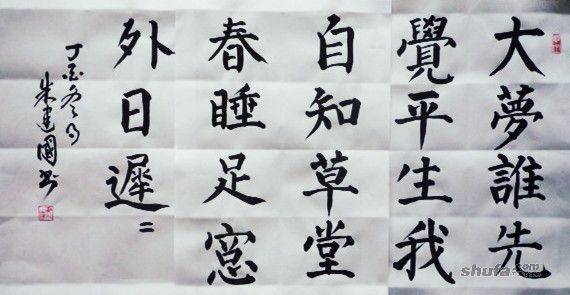 大夢誰先
覺平生我
自知草堂
春睡足窓
外日遲〻
丁冬月
朱建國書
shufa.com